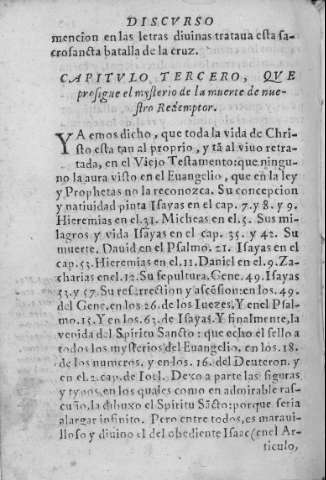 DISCVRSO
mencion en las letras diuinas trataua esta sa-
crosancta batalla de la cruz.
CAPITVLO TERCERO, QVE
prosigue el mysterio de la muerte de nue-
stro Redemptor.
YA emos dicho, que toda la vida de Chri-
sto esta tan al proprio, y tã al viuo retra-
tada, en el Viejo Testamento: que ningu-
no la aura visto en el Euangelio, que en la ley
y Prophetas no la reconozca. Su concepcion
y natiuidad pinta Isayas en el cap. 7. y 8. y 9.
Hieremias en el. 31. Micheas en el. 5. Sus mi-
lagros y vida Isayas en el cap. 35. y 42. Su
muerte, Dauid en el Psalmo. 21. Isayas en el
cap. 53. Hieremias en el. 11. Daniel en el. 9. Za-
charias en el. 12. Su sepultura. Gene. 49. Isayas
53. y 57. Su resurrection y ascẽsiõ: en los. 49.
del Gene. en los 26. de los Iuezes. Y en el Psal-
mo. 15. Y en los. 63. de Isayas. Y finalmente, la
venida del Spiritu Sancto: que echo el sello a
todos los mysterios del Euangelio, en los. 18.
de los numeros, y en los. 16. del Deuteron. y
en el. 2. cap. de Ioel. Dexo a parte las figuras
y typos, en los quales como en admirable ras-
cuño, la dibuxo el Spiritu Sãcto: porque seria
alargar infinito. Pero entre todos, es maraui-
lloso y diuino el del obediente Isaac (en el Ar-
ticulo,